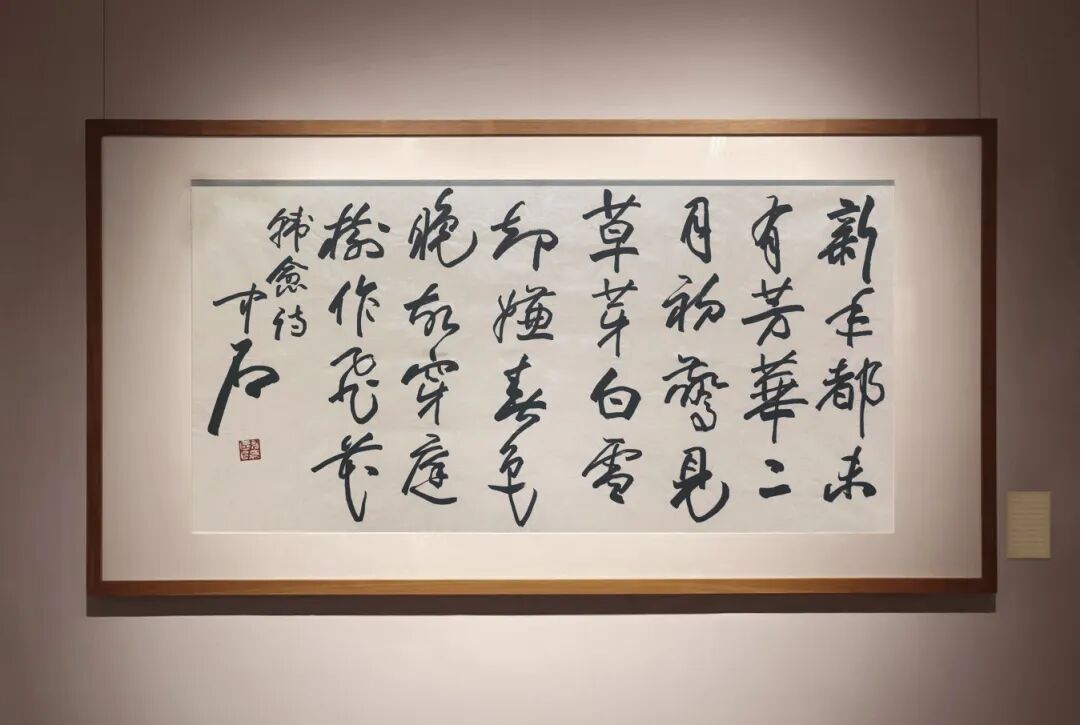 新年都未
有芳華二
月初驚見
草芽白雪
却嫌春色
晚故穿庭
樹作飛花
韓愈詩
中石